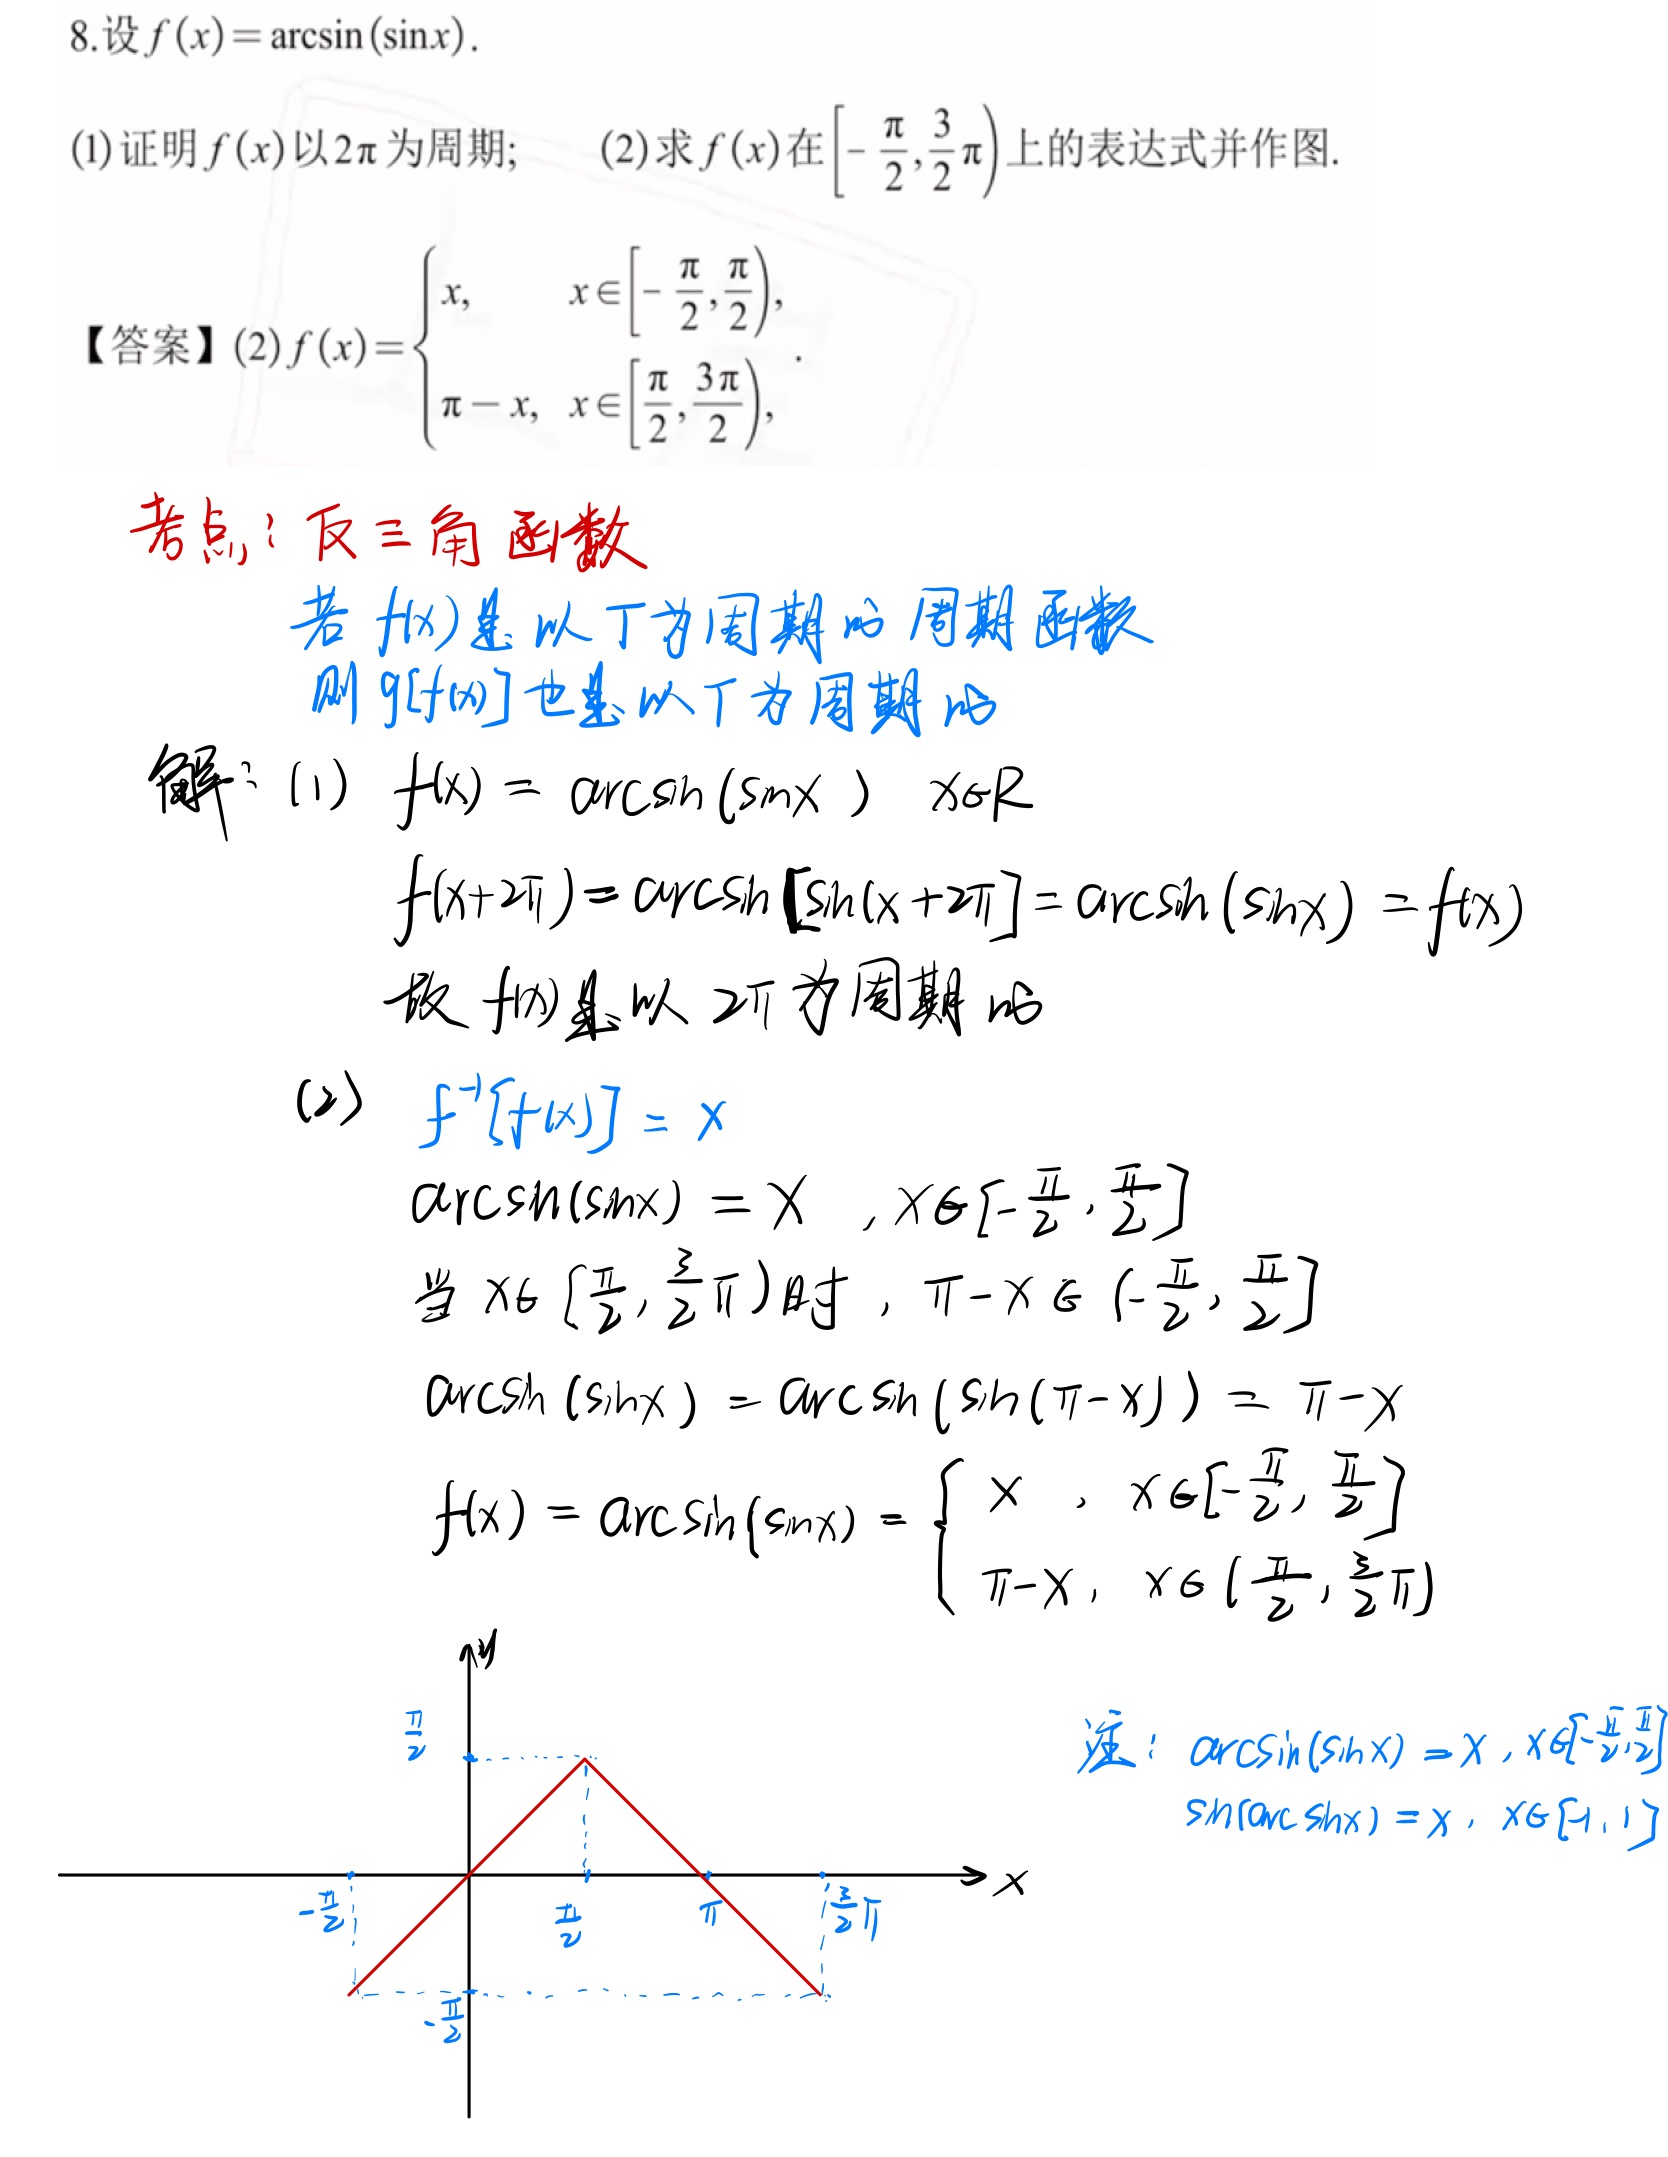 8.设 f(x)=arcsin(sinx).
(1)证明 f(x)以2π为周期; (2)求 f(x)在[-π/2,3/2π)上的表达式并作图.
【答案】(2)f(x)={x, x∈[-π/2,π/2), π-x, x∈[π/2,3π/2), .
考点:反三角函数
若 f(x)是以T为周期的周期函数
则 g[f(x)]也是以T为周期的
解:(1) f(x) = arcsin(sinx) x∈R
f(x+2π)=arcsin[sin(x+2π]=arcsin(sinx)=f(x)
故 f(x)是以 2π为周期的
(2) f⁻¹[f(x)] = x
arcsin(sinx) = x , x∈[-π/2,π/2]
当 x∈[π/2,3/2π)时, π-x∈(-π/2,π/2]
arcsin(sinx) = arcsin(sin(π-x)) = π-x
f(x) = arcsin(sinx) = {x , x∈[-π/2,π/2] π-x, x∈(π/2,3/2π)
y
π/2
注: arcsin(sinx) = x , x∈[-π/2,π/2]
sin(arcsinx) = x , x∈[-1,1]
-π/2 π/2 π 3/2π x
-π/2